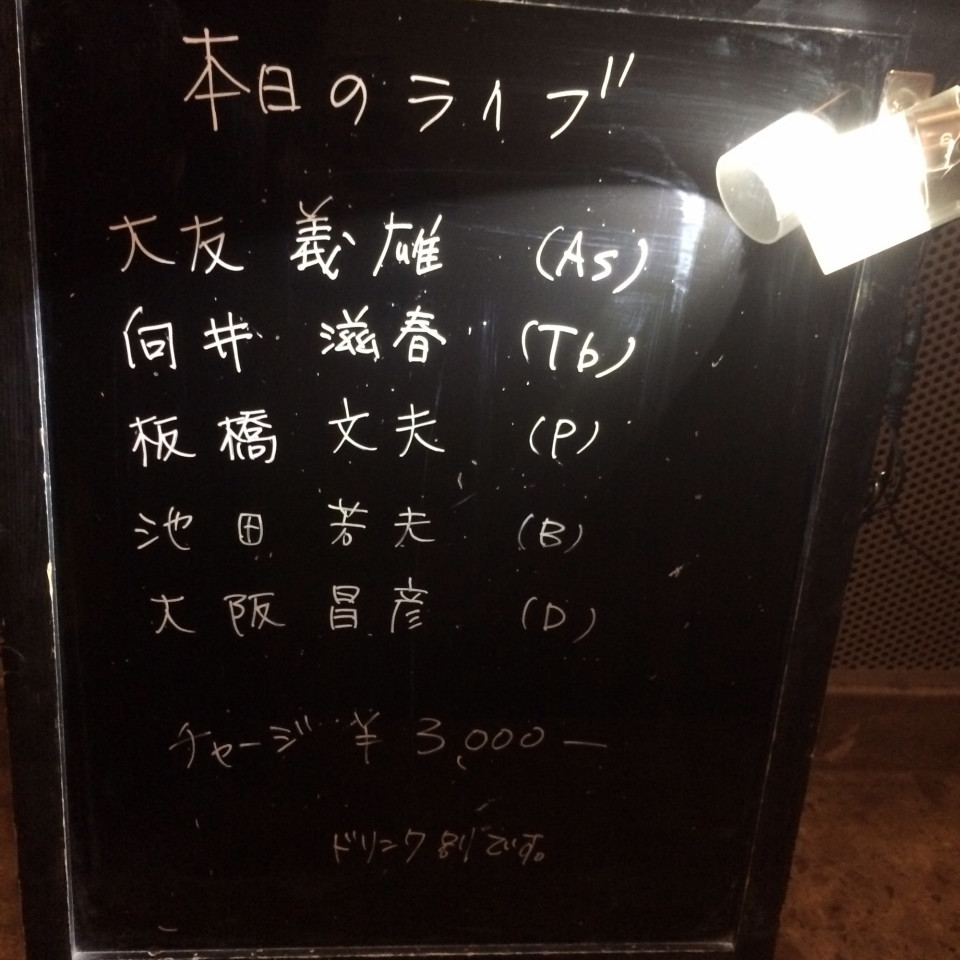 本日のライブ
大友 義雄 (As)
向井 滋春 (Tb)
板橋 文夫 (P)
池田 芳夫 (B)
大阪 昌彦 (D)
チャージ ¥3,000ー
ドリンク別です。